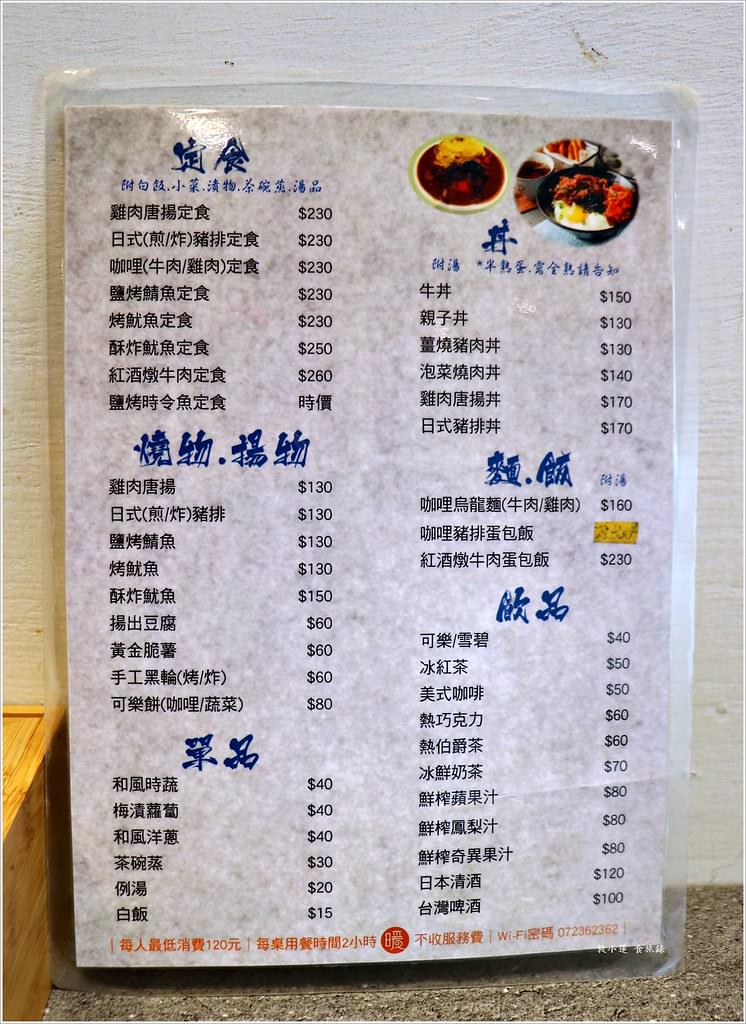 定食
附白飯.小菜.漬物.茶碗蒸.湯品
雞肉唐揚定食 $230
日式(煎/炸)豬排定食 $230
咖哩(牛肉/雞肉)定食 $230
鹽烤鯖魚定食 $230
烤魷魚定食 $230
酥炸魷魚定食 $250
紅酒燉牛肉定食 $260
鹽烤時令魚定食 時價
燒物.揚物
雞肉唐揚 $130
日式(煎/炸)豬排 $130
鹽烤鯖魚 $130
烤魷魚 $130
酥炸魷魚 $150
揚出豆腐 $60
黃金脆薯 $60
手工黑輪(烤/炸) $60
可樂餅(咖哩/蔬菜) $80
單品
和風時蔬 $40
梅漬蘿蔔 $40
和風洋蔥 $40
茶碗蒸 $30
例湯 $20
白飯 $15
丼
附湯 *半熟蛋.需全熟請告知
牛丼 $150
親子丼 $130
薑燒豬肉丼 $130
泡菜燒肉丼 $140
雞肉唐揚丼 $170
日式豬排丼 $170
麵.飯 附湯
咖哩烏龍麵(牛肉/雞肉) $160
咖哩豬排蛋包飯
紅酒燉牛肉蛋包飯 $230
飲品
可樂/雪碧 $40
冰紅茶 $50
美式咖啡 $50
熱巧克力 $60
熱伯爵茶 $60
冰鮮奶茶 $70
鮮榨蘋果汁 $80
鮮榨鳳梨汁 $80
鮮榨奇異果汁 $80
日本清酒 $120
台灣啤酒 $100
|每人最低消費120元|每桌用餐時間2小時 暖 不收服務費|Wi-Fi密碼 072362362|
食旅錄